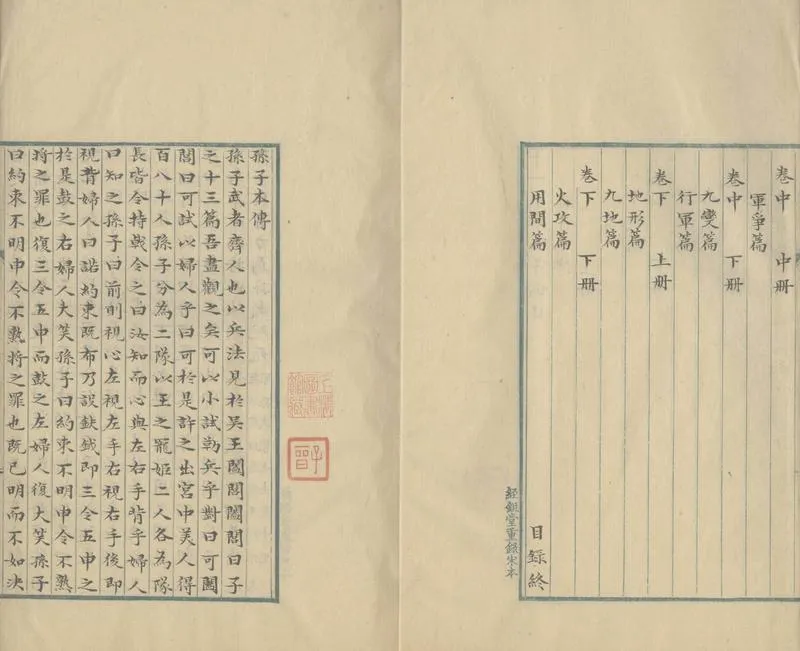 卷中 中冊
軍爭篇
卷中 下冊
九變篇
行軍篇
卷下 上冊
地形篇
九地篇
卷下 下冊
火攻篇
用間篇 目錄終
經鉏堂重錄宋本
孫子本傳
孫子武者齊人也以兵法見於吳王闔閭闔閭曰子
之十三篇吾盡觀之矣可以小試勒兵乎對曰可闔
閭曰可試以婦人乎曰可於是許之出宮中美人得
百八十人孫子分為二隊以王之寵姬二人各為隊
長皆令持戟令之曰汝知而心與左右手背乎婦人
曰知之孫子曰前則視心左視左手右視右手後即
視背婦人曰諾約束既布乃設鈇鉞即三令五申之
於是鼓之右婦人大笑孫子曰約束不明申令不熟
將之罪也復三令五申而鼓之左婦人復大笑孫子
曰約束不明申令不熟將之罪也既已明而不如法